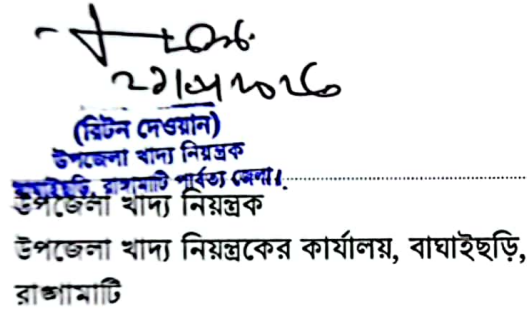 (রিটন দেওয়ান)
উপজেলা খাদ্য নিয়ন্ত্রক
বাঘাইছড়ি, রাঙ্গামাটি পার্বত্য জেলা।
উপজেলা খাদ্য নিয়ন্ত্রক
উপজেলা খাদ্য নিয়ন্ত্রকের কার্যালয়, বাঘাইছড়ি,
রাঙ্গামাটি